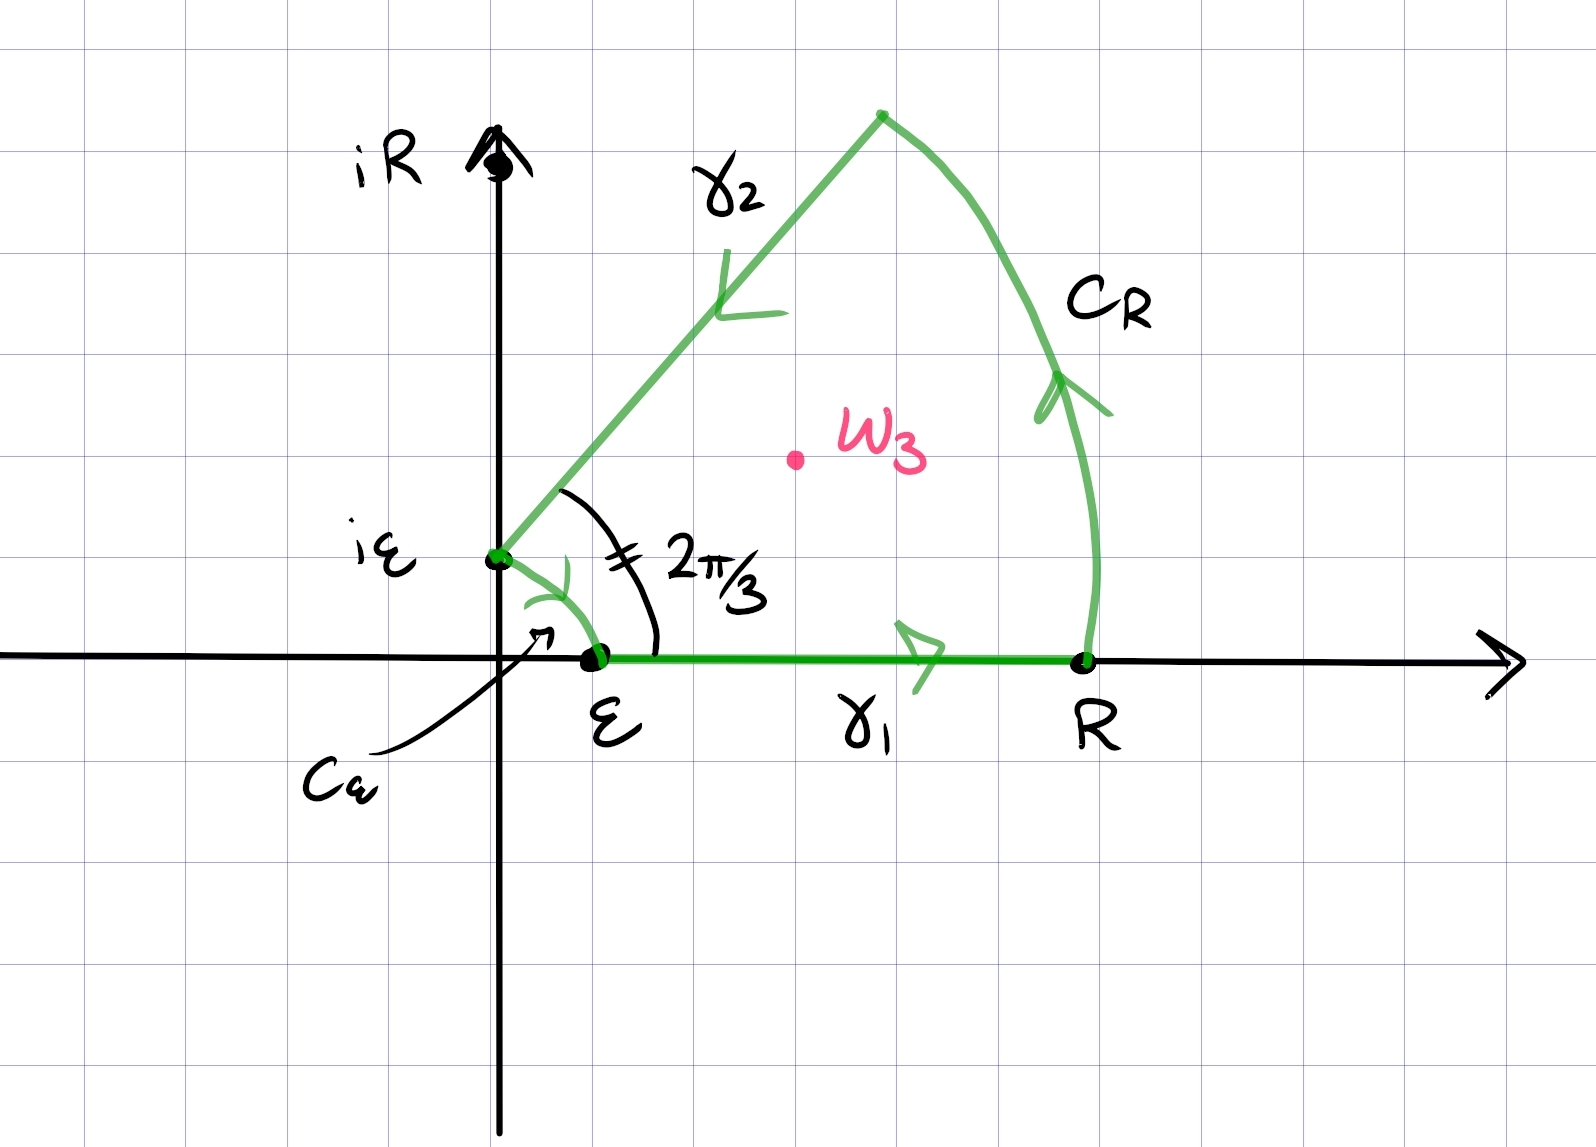 iR
γ2
CR
ω3
iε
2π/3
ε
γ1
R
Cε